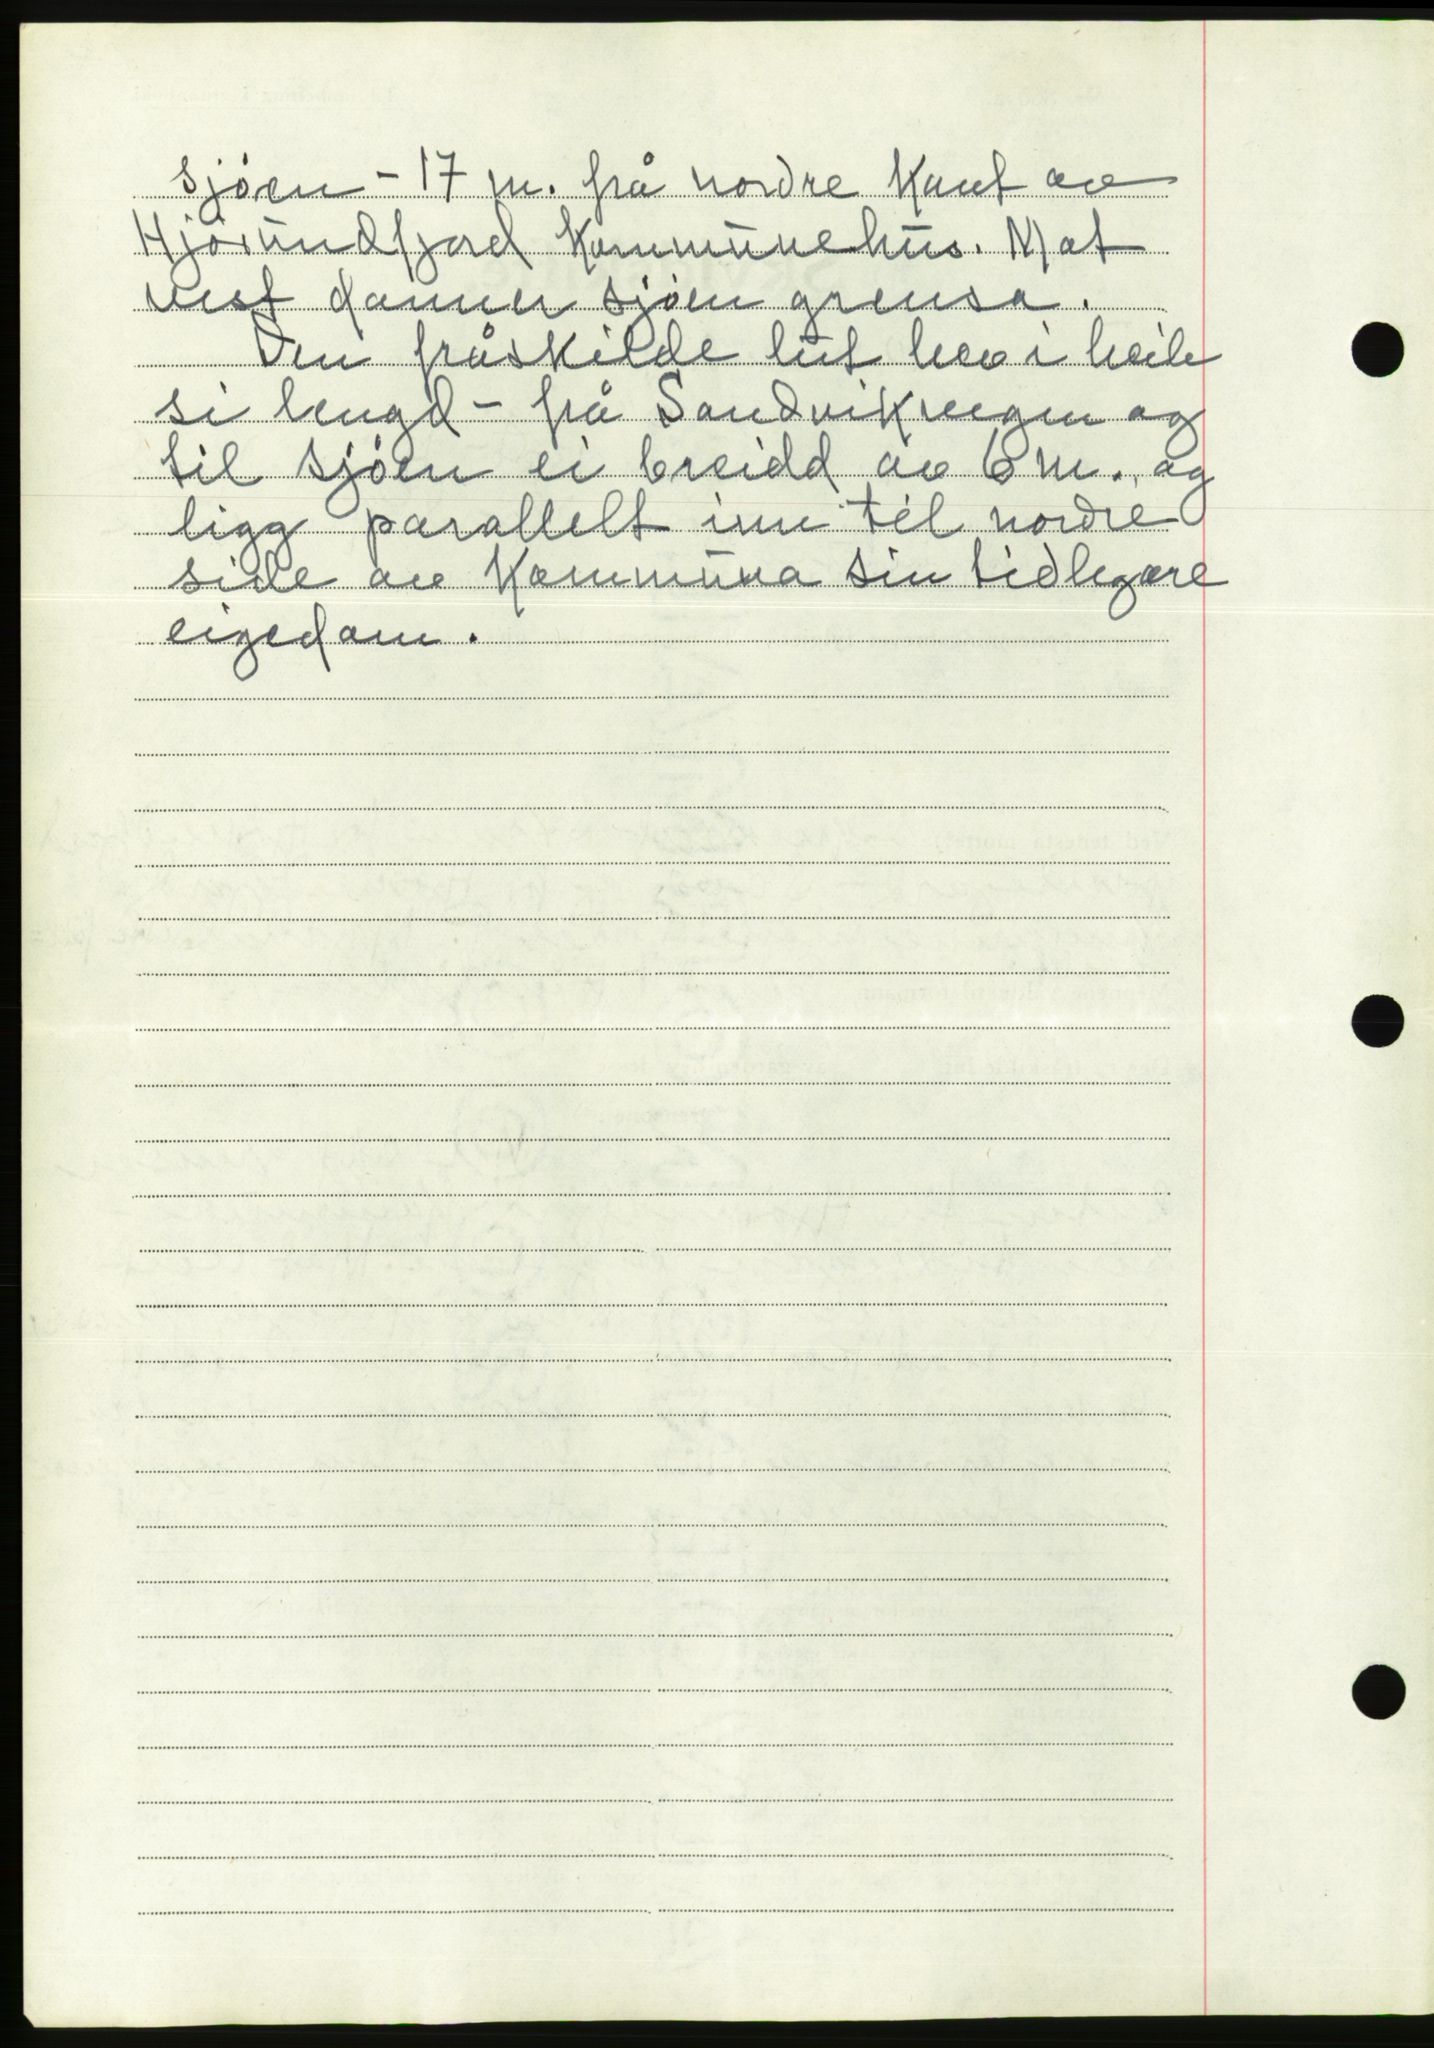 sjøen - 17 m. frå nordre kant av
Hjørundfjord kommunehus. Mot
vest danner sjøen grensa.
Den fråskilde lut hev i heile
si lengd - frå Sandvikvegen og
til sjøen ei breidd av 6 m. og
ligg parallelt inn til nordre
side av kommuna sin tidlegare
eigedom.